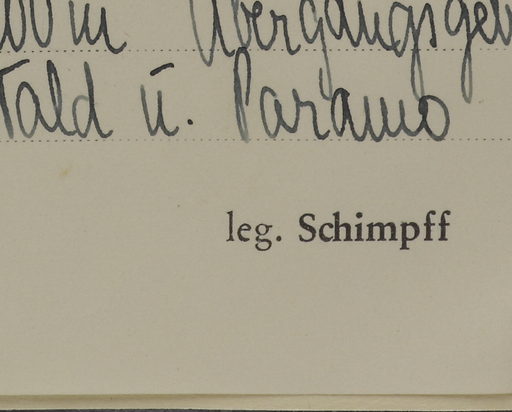 Übergangsgeb
Wald u. Paramo
leg. Schimpff